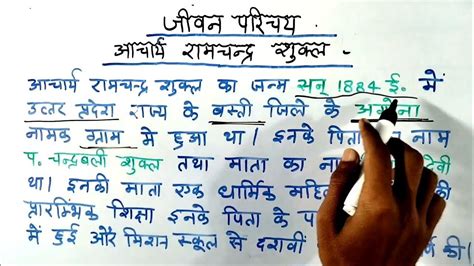 जीवन परिचय
आचार्य रामचन्द्र शुक्ल -
आचार्य रामचन्द्र शुक्ल का जन्म सन् 1884 ई. में
उत्तर प्रदेश राज्य के बस्ती जिले के अगोना
नामक ग्राम मे हुआ था। इनके पिता नाम
प. चन्द्रबली शुक्ल तथा माता का ना देवी
था। इनकी माता एक धार्मिक
प्रारम्भिक शिक्षा इनके पिता के
में हुई और मिशन स्कूल से दशवीं की।